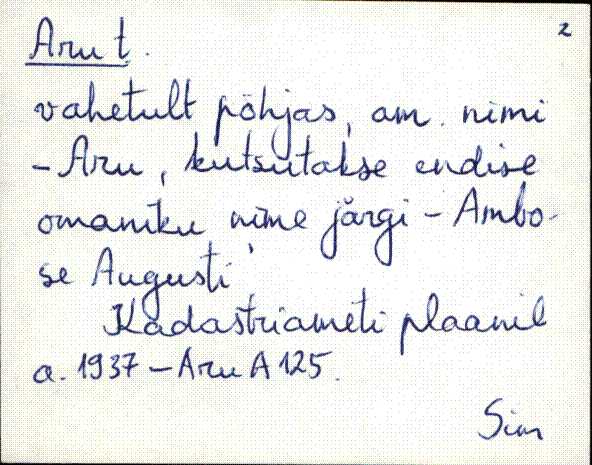 2
Aru t.
vahetult põhjas, am. nimi
- Aru, kutsutakse endise
omaniku nime järgi - Ambo-
se Augusti
Kadastriameti plaanil
a. 1937 - Aru A 125.
Sim